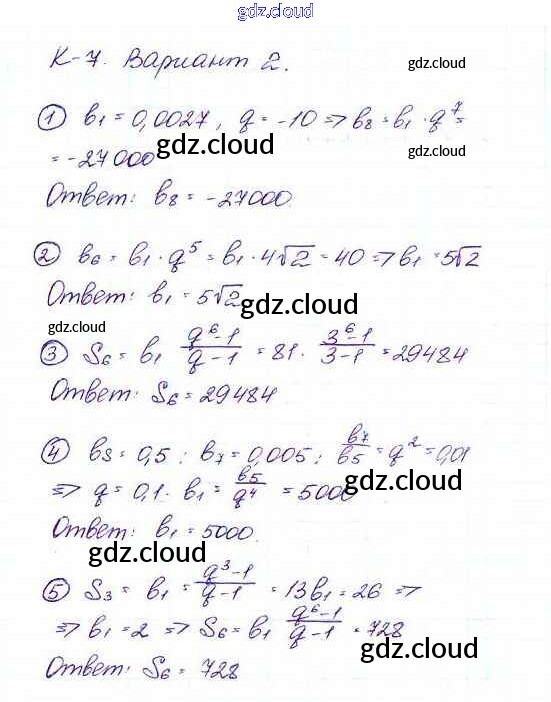 gdz.cloud
К-7. Вариант 2.
gdz.cloud
① b₁ = 0,0027, q = -10 ⇒ b₈ = b₁ · q⁷ =
gdz.cloud
= -27000
gdz.cloud
Ответ: b₈ = -27000.
② b₆ = b₁ · q⁵ = b₁ · 4√2 = 40 ⇒ b₁ = 5√2
Ответ: b₁ = 5√2
gdz.cloud
gdz.cloud
③ S₆ = b₁ (q⁶-1)/(q-1) = 81 · (3⁶-1)/(3-1) = 29484
Ответ: S₆ = 29484
gdz.cloud
④ b5 = 0,5 ; b₇ = 0,005 ; b₇/b5 = q² = 0,01
gdz.cloud
⇒ q = 0,1 · b₁ = b5/q⁴ = 5000
Ответ: b₁ = 5000.
gdz.cloud
⑤ S₃ = b₁ = (q³-1)/(q-1) = 13b₁ = 26 ⇒
⇒ b₁ = 2 ⇒ S₆ = b₁ (q⁶-1)/(q-1) = 728
gdz.cloud
Ответ: S₆ = 728